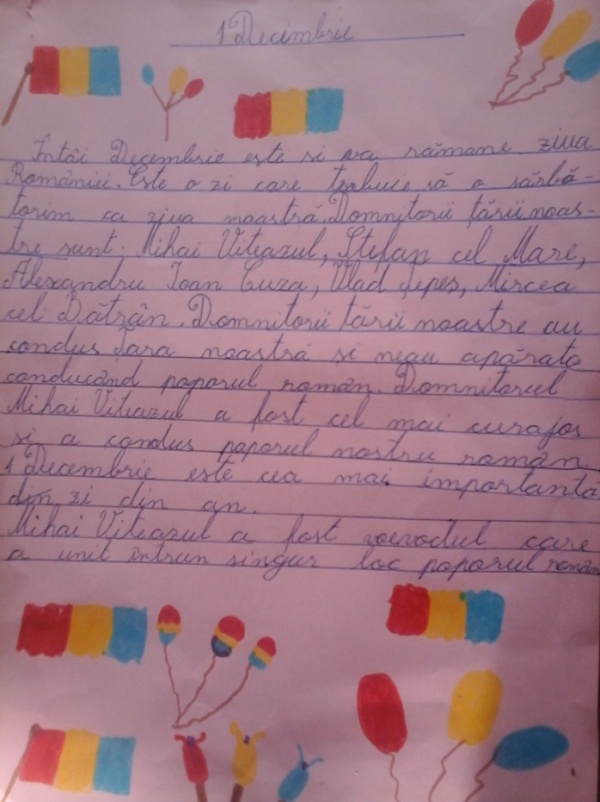 1 Decembrie
Întâi Decembrie este si va rămane ziua
României. Este o zi care trebuie să o sărbă-
torim ca ziua noastră. Domnitorii tării noas-
tre sunt: Mihai Viteazul, Ştefan cel Mare,
Alexandru Ioan Cuza, Vlad Ţepeş, Mircea
cel Bătrân. Domnitorii tării noastre au
condus Țara noastră si neau apărato
conducând poporul român. Domnitorul
Mihai Viteazul a fost cel mai curajos
si a condus poporul nostru român
1 Decembrie este cea mai importantă
din zi din an.
Mihai Viteazul a fost voevodul care
a unit intrun singur loc poporul român